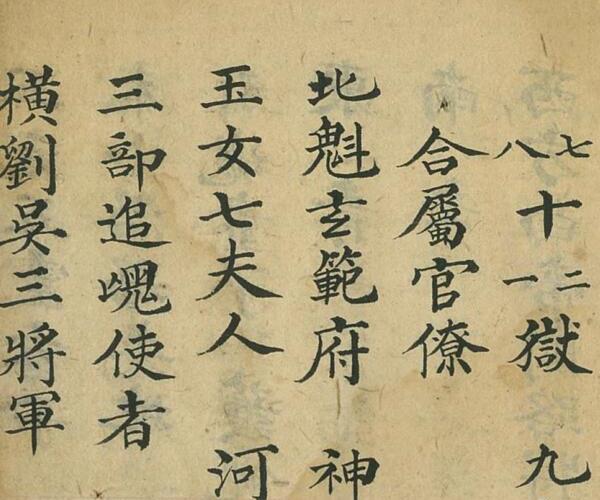 七八十二一獄 九
合屬官僚
北魁玄範府 神
玉女七夫人 河
三部追魂使者
橫劉吳三將軍